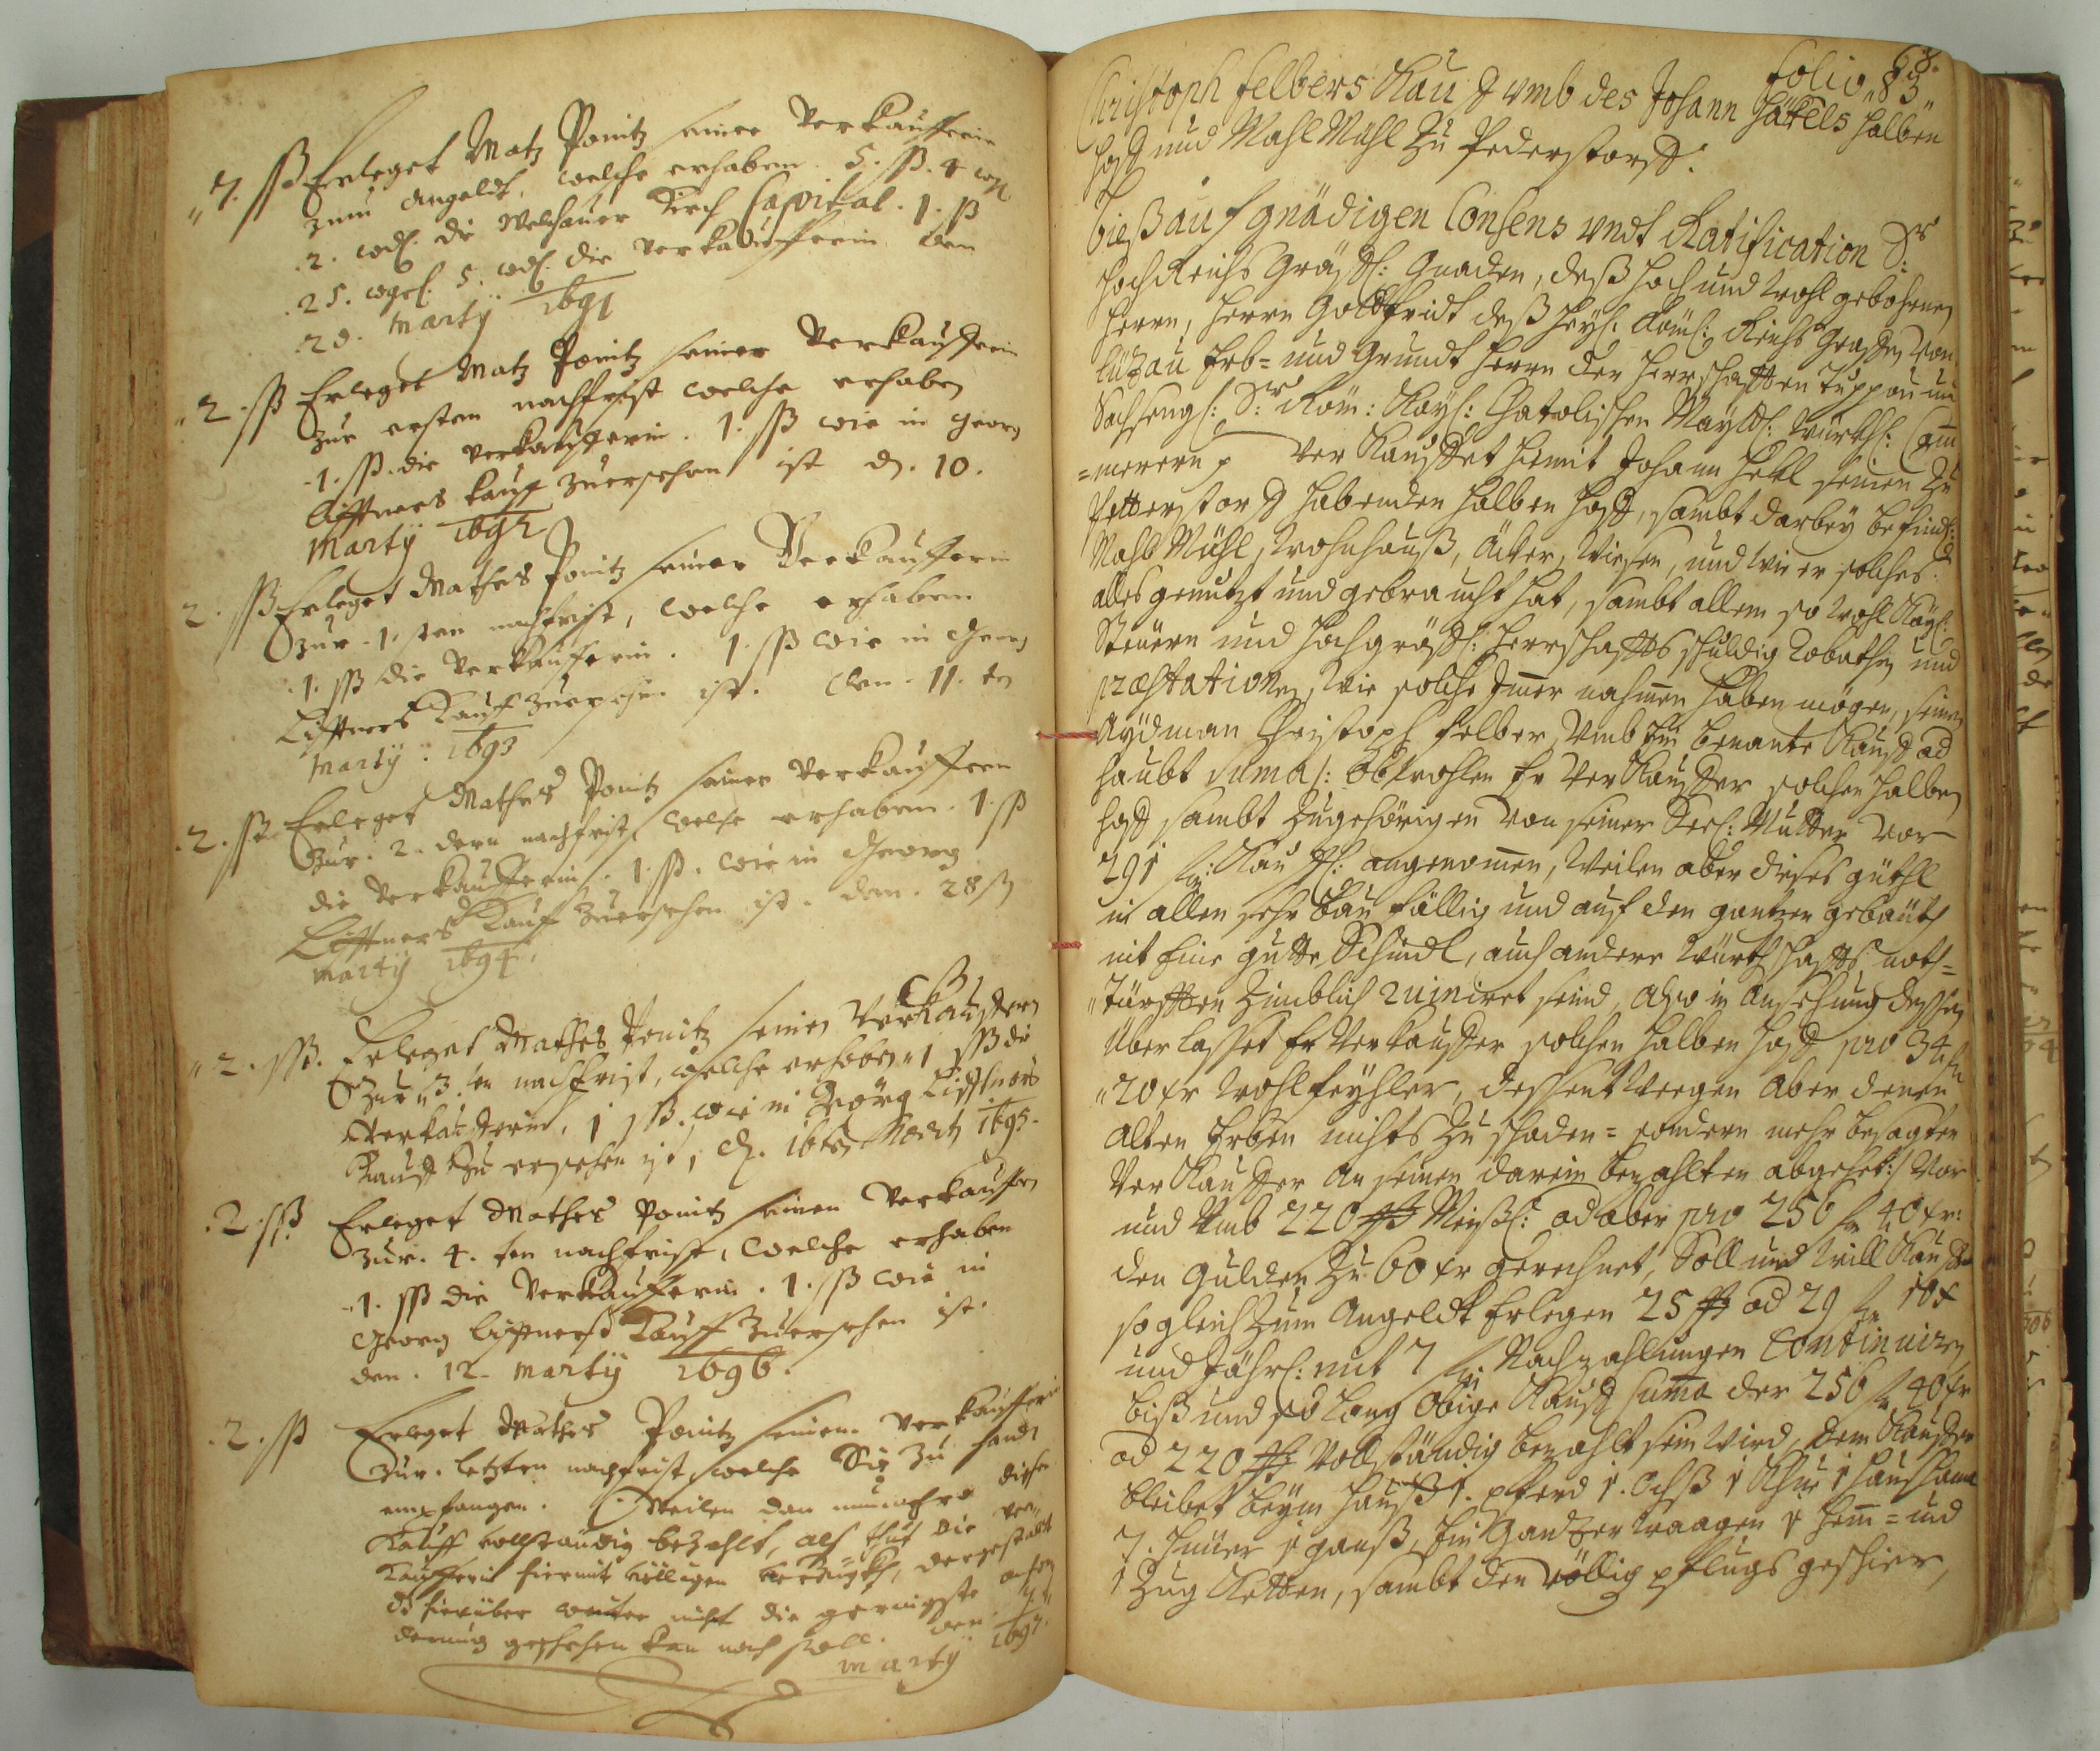 7. ßß Erleget Matz Ponitz seiner Verkaufferin
zum Angeldt, welche erhaben. 5. ßß. 4 wgl
2. wd. die Welchauer Kirch Capital. 1. ß
25. wgl. 5. wd. die Verkaufferin den
20. Martÿ 1691
2. ßß Erleget Matz Ponitz seiner Verkaufferin
zur ersten nachfrist welche erhaben
1. ßß. die Verkaufferin. 1. ßß wie in Georg
Liffners Kauf zuersehen ist d. 10.
Martÿ 1692
2. ßß Erleget Mathes Ponitz seiner Verkaufferin
zur 1. sten nachfrist, welche erhaben
1. ßß die Verkaufferin. 1. ßß wie in Georg
Liffners Kauf zuersehen ist. den 11. ten
Martÿ. 1693
2. ßß Erleget Mathes Ponitz seiner Verkauffern
zur. 2. dern nachfrist welche erhaben. 1. ßß
die Verkaufferin. 1. ßß. wie in Georg
Liffners Kauf zuersehen ist. den. 28ß
Martÿ 1694.
2. ßß. Erleget Mathes Ponitz seinen Verkauffern
zur 3. ten nachfrist, welche erhoben 1 ßß die
Verkaufferin, 1 ßß. wie in Geörg Liffners
Kauff zu ersehen ist, d. 16ten Marty 1695.
2. ßß Erleget Mathes Ponitz seinen Verkauffern
zur. 4. ten nachfrist, welche erhaben
1. ßß die Verkaufferin. 1. ßß wie in
Georg Liffners Kauff zuersehen ist.
den. 12. Martÿ 1696.
2. ßß Erleget Mathes Ponitz seinen Verkaufferin
zur. letzten nachfrist, welche Sie zu handt
empfangen. Weilen dan nunmehro dieser
Kauff vollständig bezahlt, als thut die ver
Kaufferin hiermit völligen verzügth, dergestaldt
d hierüber weiter nicht die geringste
derung geschehen kan noch soll. den
Martÿ 1697.
68.
Folio 83
Christoph Felbers Kauf umb des Johann Häckels halben
Hoff und Mahl Mühl zu Pederstorff.
Bieß auf gnädigen Consens undt Ratification Sr
Hoch Reichs Gräffl: Gnaden, deß Hoch und Wohl gebohrnen
Herrn, Herrn Gottfridt deß Heyl: Röml: Reichs Graffen von
Lüzau Erb= und Grundt Herrn der Herrschafften Tuppau und
Sachsengl: Sr Röm: Kayl: Chatolischen Maytt: Würkhl: Cam
=merern p Verkauffet hiemit Johann Hekl seinen zu
Petterstorff habenden halben Hoff, sambt darbey befindl:
Mahl Mühl, Wohnhauß, Äcker, Wiesen, und wie er solches
alles genutzt und gebraucht hat, sambt allem so wohl Kayl:
Steuern und Hochgräffl: Herrschaffts schuldig Robathen und
præstationen, wie solche Imer nahmen haben mögen, seinen
Aÿdman Christoph Felber, Umb Ein benante Kauff ad
haubt suma: Obwohlen Er Verkauffer solchen halben
Hoff sambt Zugehörigen von seiner Seel: Mutter vor
291 f: Kauffl: angenomen, Weilen aber dieses güthl
in allen sehr bau fällig und auf den gantzen gebäuth
nit Eine gutte Schindl, auch andere Würthschaffts noth=
türfften zimblich ruiniret seind, also in Ansehung dessen
Über lasset Er Verkauffer solchen halben Hoff pro 34 f
20 xr wohlfeyhler, dessentwegen aber denen
Alten Erben nichts zu schaden= sondern mehr besagten
Verkauffer an seinen darein bezahlten abgehet: Vor
und Umb 220 ßß Meißl: ad aber pro 256 f 40 xr:
den Gulden zu 60 xr gerechnet, Soll und will Kauffer
sogleich zum Angeldt Erlegen 25 ßß ad 29 f 10 x
und Jährl: mit 7 f. Nachzahlungen Continuiren
biß und so lang Obige Kauff suma der 256 f 40 xr
ad 220 ßß vollständig bezahlt sein wird, dem Kauffer
bleibet beÿm Hauß 1. pferd 1. Ochß 1 Khue 1 Haushann
7. Hüner 1 ganß, Ein Gantzer Waagen 1 Hem= und
1 Zug Ketten, sambt den völlig pflugs geschier,